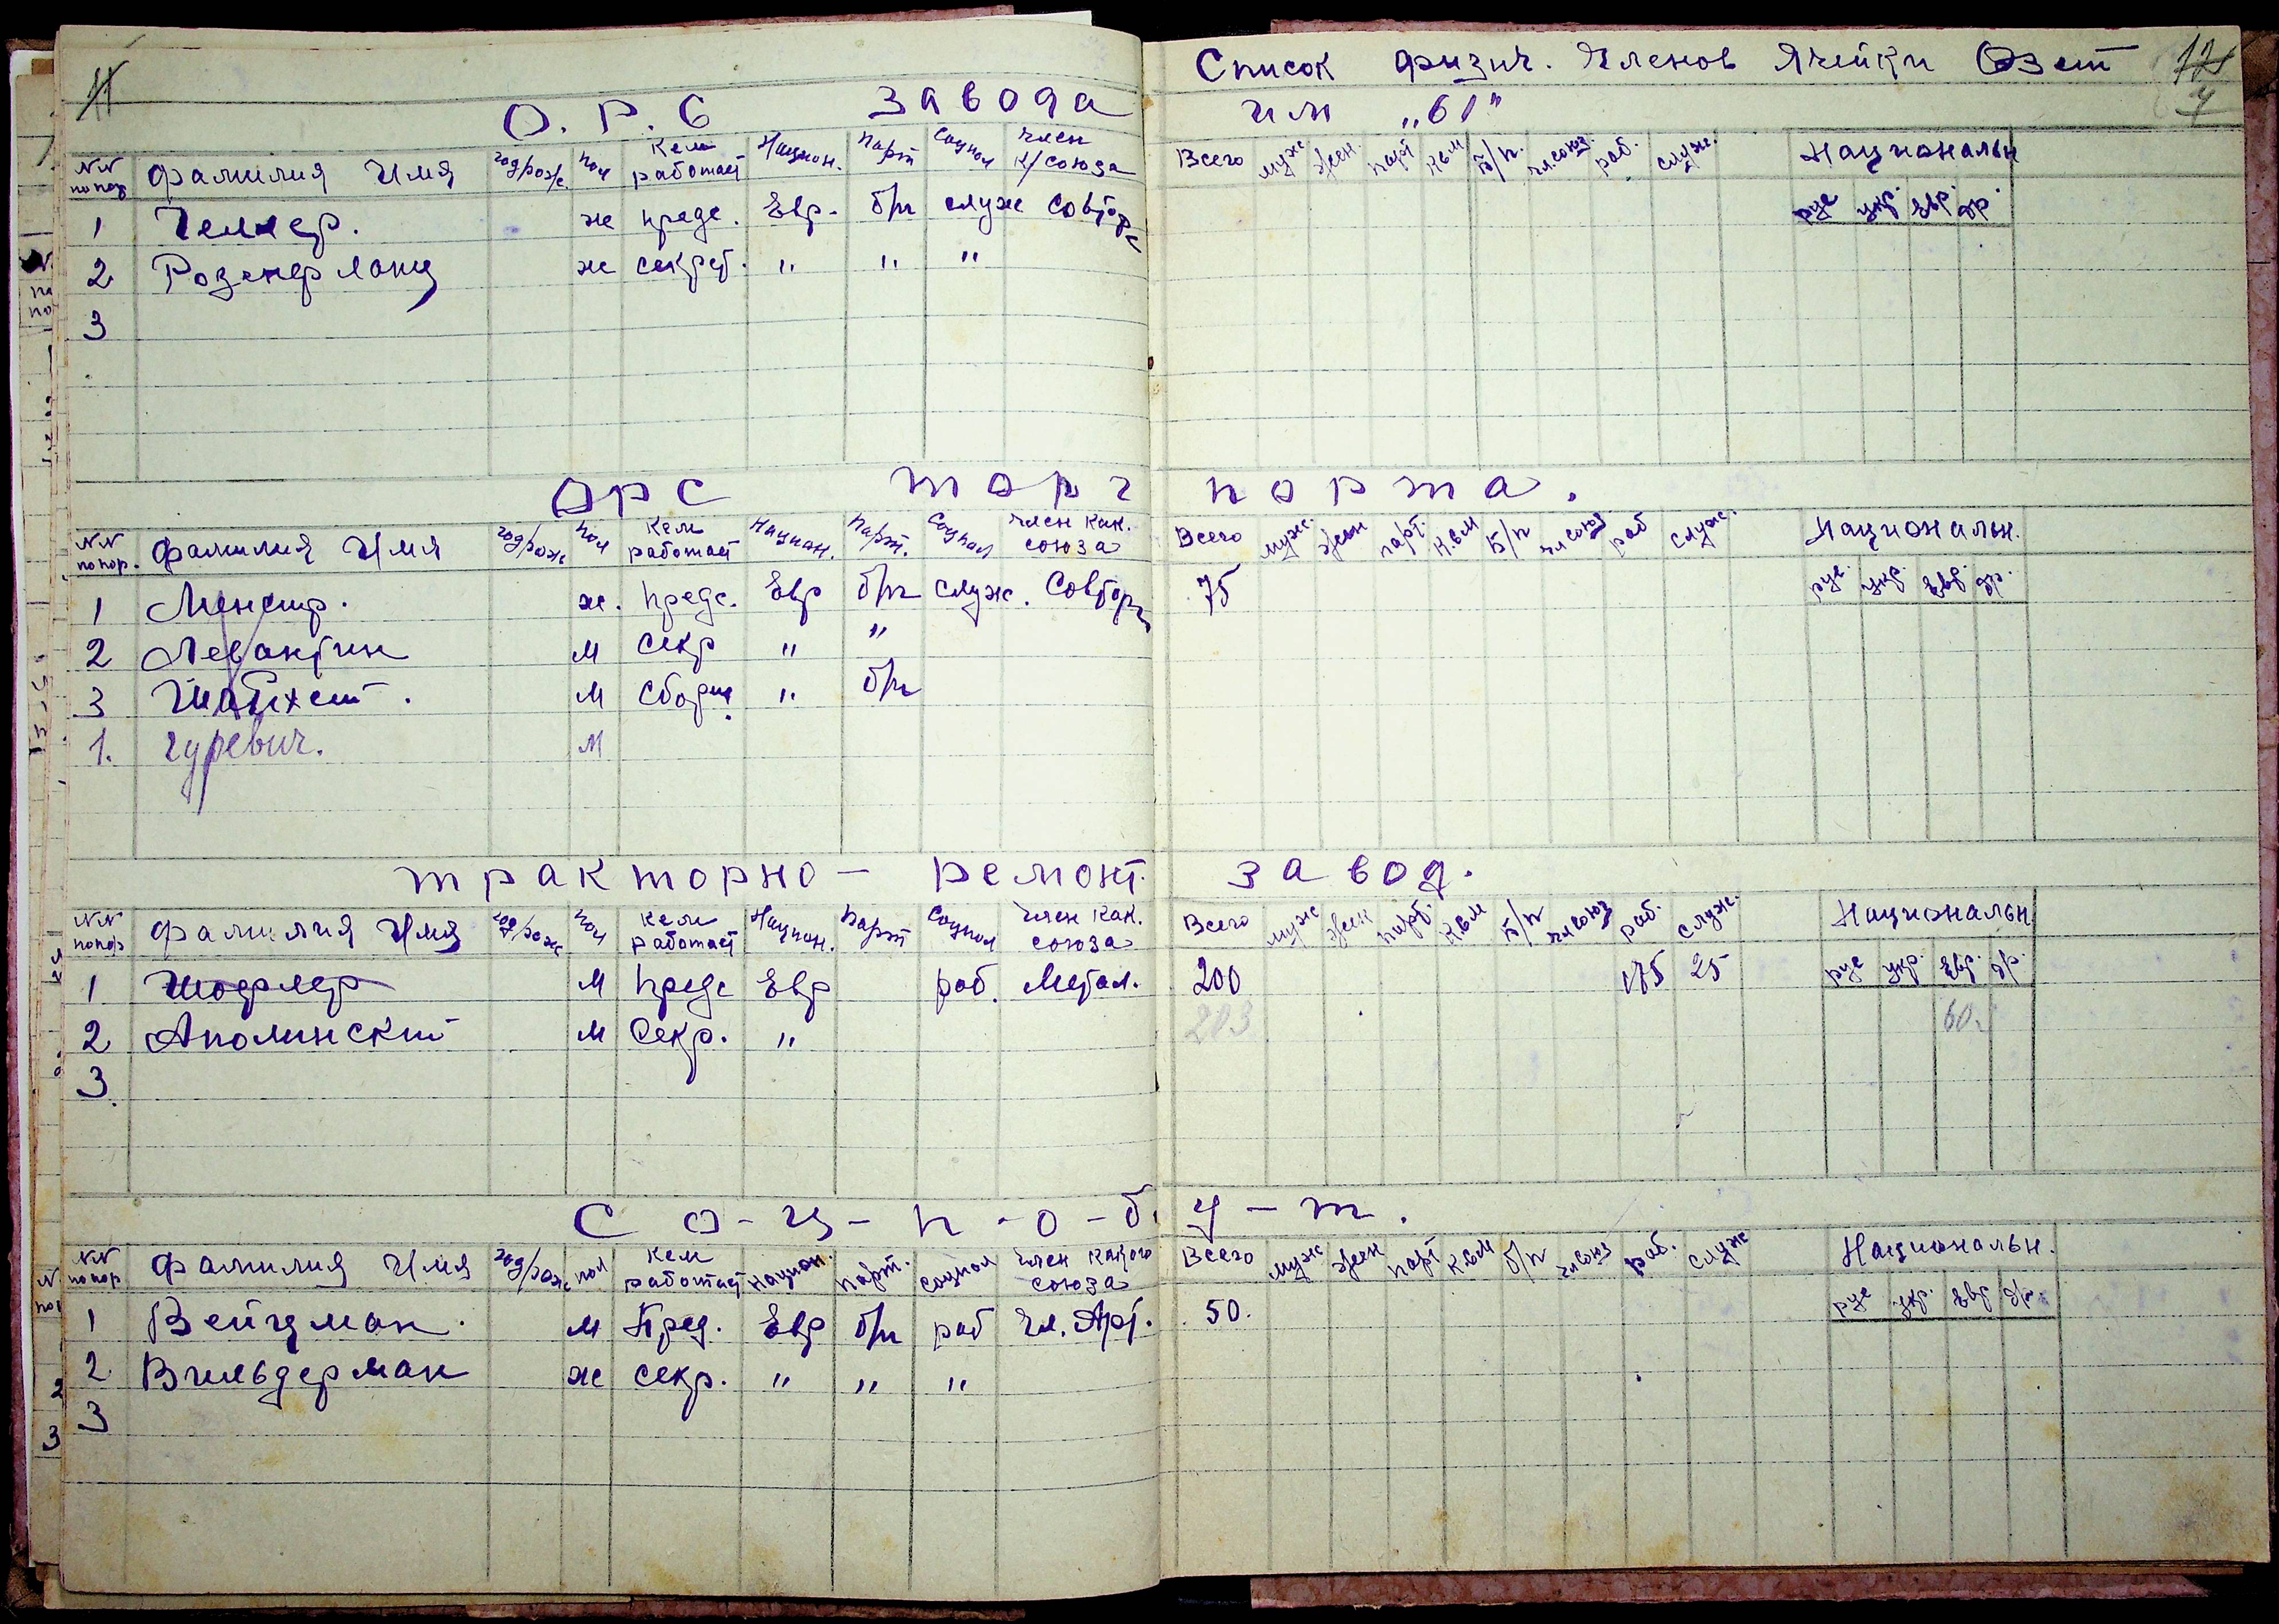 11 Список физич. Членов Ячейки Озет
О.Р.С завода им „61"
№№ по пор фамилия Имя год/рож пол Кем работает Национ. Парт Соцпол Член к/союза Всего муж жен. парт КСМ Б/п. чл союз. раб. служ. Национальн
рус укр. Евр. др.
1 Челнер. ж предс. Евр. б/п служ Совторг
2 Розенерланц ж секрет. " " "
3
ОРС торг порта.
№№ по пор. фамилия Имя год/рож пол Кем работает Национ. Парт. Соцпол Член как. союза Всего муж. жен парт. КСМ Б/п чл союз раб служ. Национальн.
рус. укр. Евр. др.
1 ж. предс. Евр б/п служ. Совторг 75
2 Левантин м секр " "
3 м сборщ. " б/п
1. гуревич. м
тракторно – ремонт. завод.
№№ по пор фамилия Имя год/рож пол кем работает Национ. Парт Соцпол Член как. союза Всего муж жен парт. КСМ Б/п чл союз раб. служ. Национальн
рус укр. Евр. др.
1 Шафлер м предс Евр раб. Метал. 200 175 25
2 Аполинский м Секр. " 203 60.
3.
С о-ц-п-о-б. у-т.
№№ по пор фамилия Имя год/рож пол Кем работает национ. парт. соцпол Член какого союза Всего муж жен парт КСМ б/п чл союз раб. служ Национальн.
рус укр. Евр др.
1 Вейцман. м Пред. Евр б/п раб Чл. Арт. 50.
2 Вильдерман ж секр. " " "
3